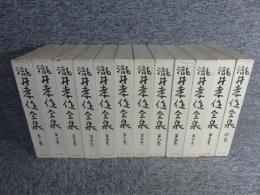 瀧井孝作全集
瀧井孝作全集
瀧井孝作全集
瀧井孝作全集
瀧井孝作全集
瀧井孝作全集
瀧井孝作全集
瀧井孝作全集
瀧井孝作全集
瀧井孝作全集
瀧井孝作全集
瀧井孝作全集
瀧井孝作全集